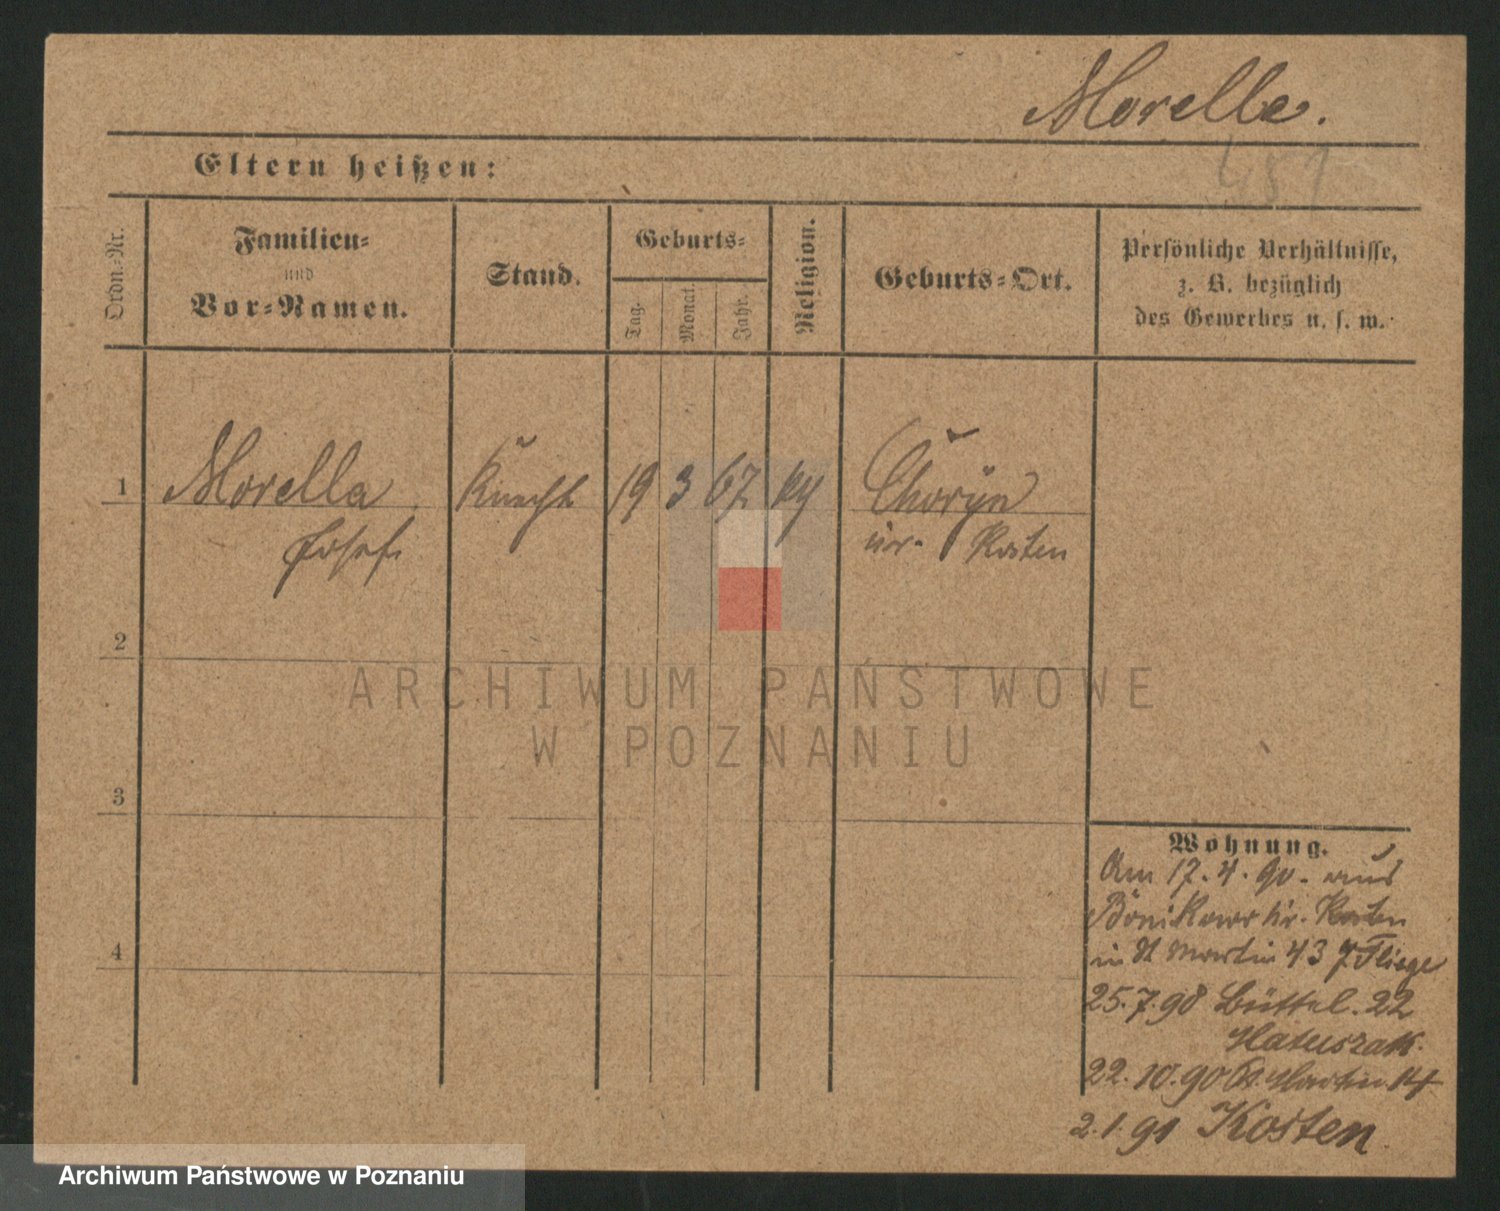 Morella.
451
Eltern heißen:
Ordn.-Nr.
Familien-
und
Vor-Namen.
Stand.
Geburts-
Tag.
Monat.
Jahr.
Religion.
Geburts-Ort.
Persönliche Verhältnisse,
z. B. bezüglich
des Gewerbes u. s. w.
1 Morella Knecht 19 3 67 Chorÿn
Josef Kosten
2
ARCHIWUM PAŃSTWOWE
W POZNANIU
3
Wohnung.
Am 17.4.90. aus
Bönikowo kr. Kosten
4
in St Martin 43 Fliege
25.7.90 Büttel. 22
Matuszak.
22.10.90 St. Martin 14
2.1.91 Kosten
Archiwum Państwowe w Poznaniu